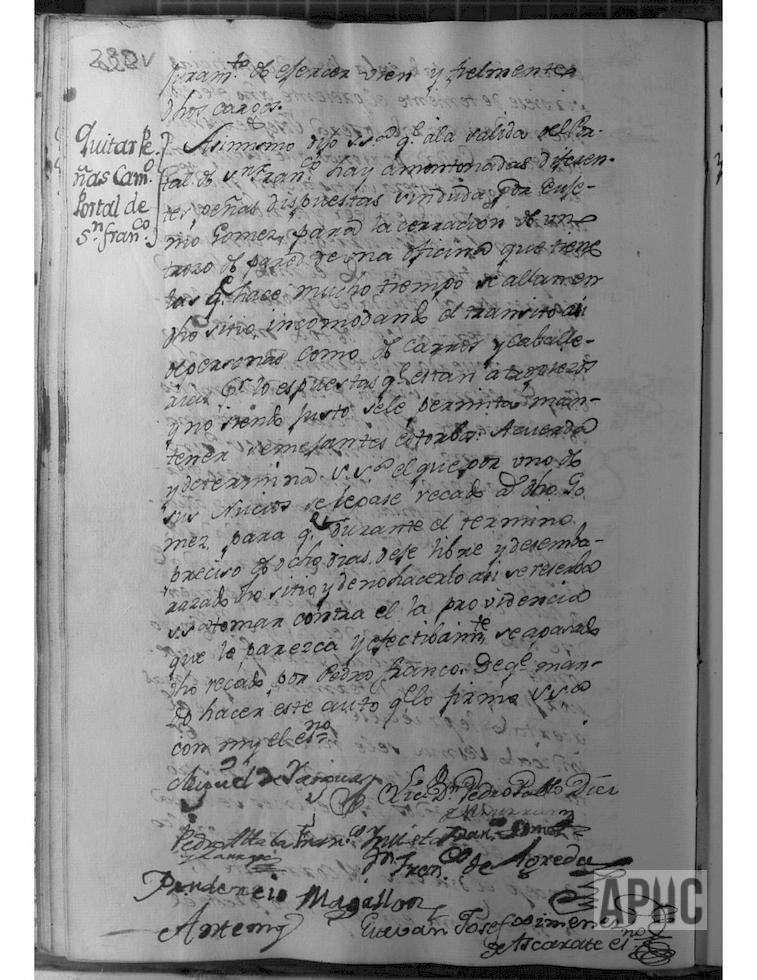 322v
juram.to de eserçer vien y fielmente
dhos cargos.
Quitar Pe
ñas Cam.o
Portal de
S.n fran.co
Asimismo dijo S. S.a q.e a la salida del Por-
tal de S.n Fran.co hay amontonadas diferen-
tes peñas dispuestas sin duda por Euse-
vio Gomez, para la cerracion de un
trozo de pared de una oficina que tiene
las q.e hace mucho tiempo se allan en
dho sitio, incomodando el transito asi
de personas como de carros y caballe-
rias
y no siendo justo se le permita man-
tener semejantes estorbos: Acuerda
y determina S. S.a el que por uno de
sus Nucios se le pase recado a dho Go
mez, para q.e durante el termino
preciso de ocho dias, deje libre y desemba-
razado dho sitio, y de no hacerlo asi se reserba
S. S.a tomar contra el la providencia
que le parezca y efectibam.te se a pasado
dho recado por Pedro Franco. De q.e man-
do hacer este auto q.e lo firma S. S.a
con my el es.no
Miguel de
Lic.do D.n Pedro Pablo Diez
Pedro
Fran.co de Agreda
Prudencio Magallon
Antemy
Estevan Josef Ximenez
de Ascarate es.no
APHC